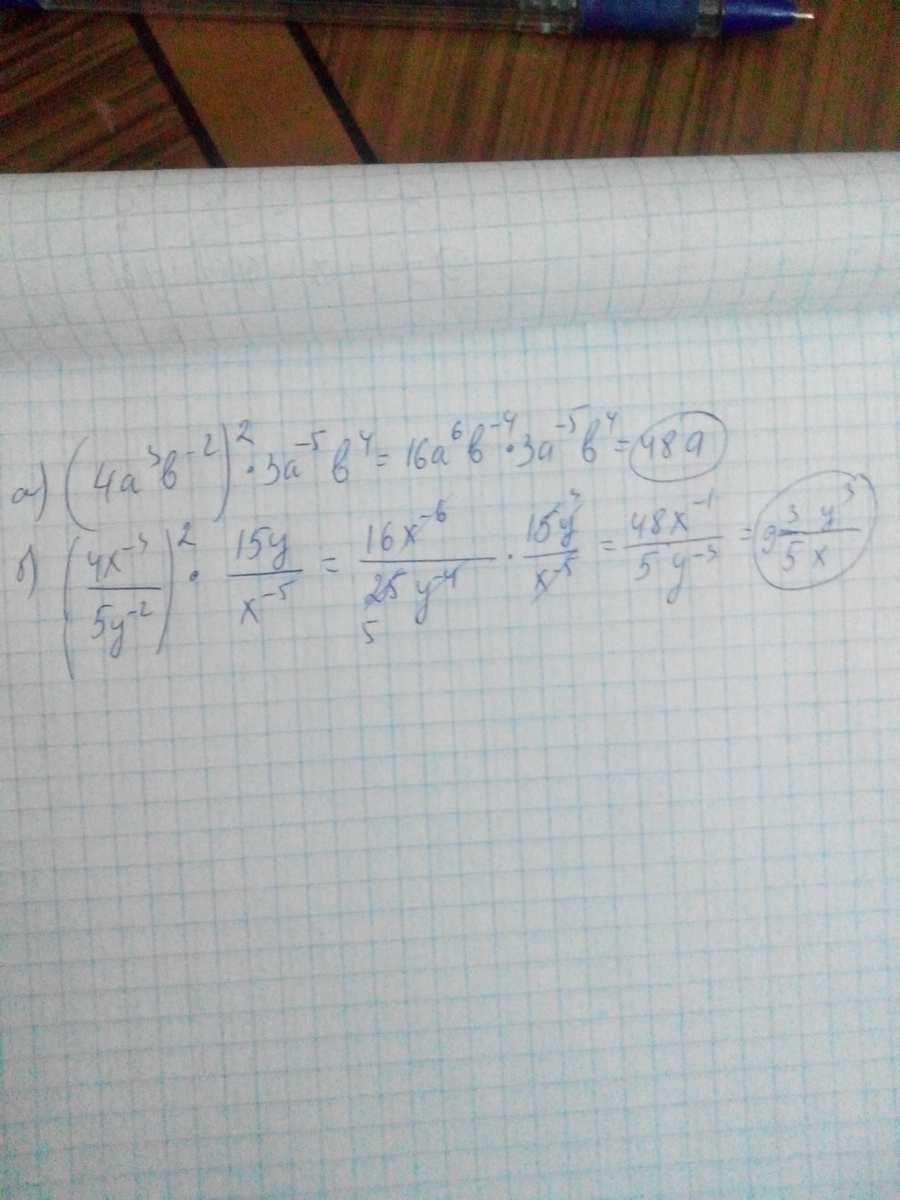 а) (4a³b⁻²)² · 3a⁻⁵b⁴ = 16a⁶b⁻⁴ · 3a⁻⁵b⁴ = 48a
б) (4x⁻³/5y⁻²)² · 15y/x⁻⁵ = 16x⁻⁶/25y⁻⁴ 5 · 15y 3/x⁻⁵ = 48x⁻¹/5y⁻³ = 9 3y³/5x